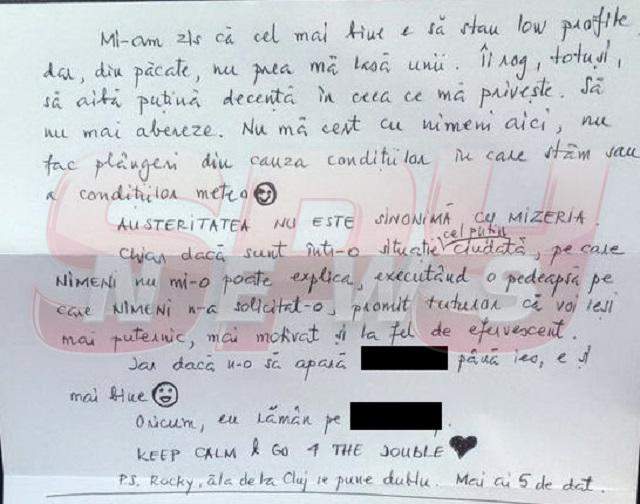 Mi-am zis că cel mai bine e să stau low profile
dar, din păcate, nu prea mă lasă unii. Îi rog, totuși,
să aibă puțină decență în ceea ce mă privește. Să
nu mai abereze. Nu mă cert cu nimeni aici, nu
fac plângeri din cauza condițiilor în care stăm sau
a condițiilor meteo
AUSTERITATEA NU ESTE SINONIMĂ CU MIZERIA.
cel puțin
Chiar dacă sunt într-o situație ciudată, pe care
NIMENI nu mi-o poate explica, executând o pedeapsă pe
care NIMENI n-a solicitat-o, promit tuturor că voi ieși
mai puternic, mai motivat și la fel de efervescent.
Iar dacă n-o să apară până ies, e și
mai bine
Oricum, eu rămân pe .
KEEP CALM & GO 4 THE DOUBLE
PS. Rocky, ăla de la Cluj se pune dublu. Mai ai 5 de dat.
SPY
NEWS